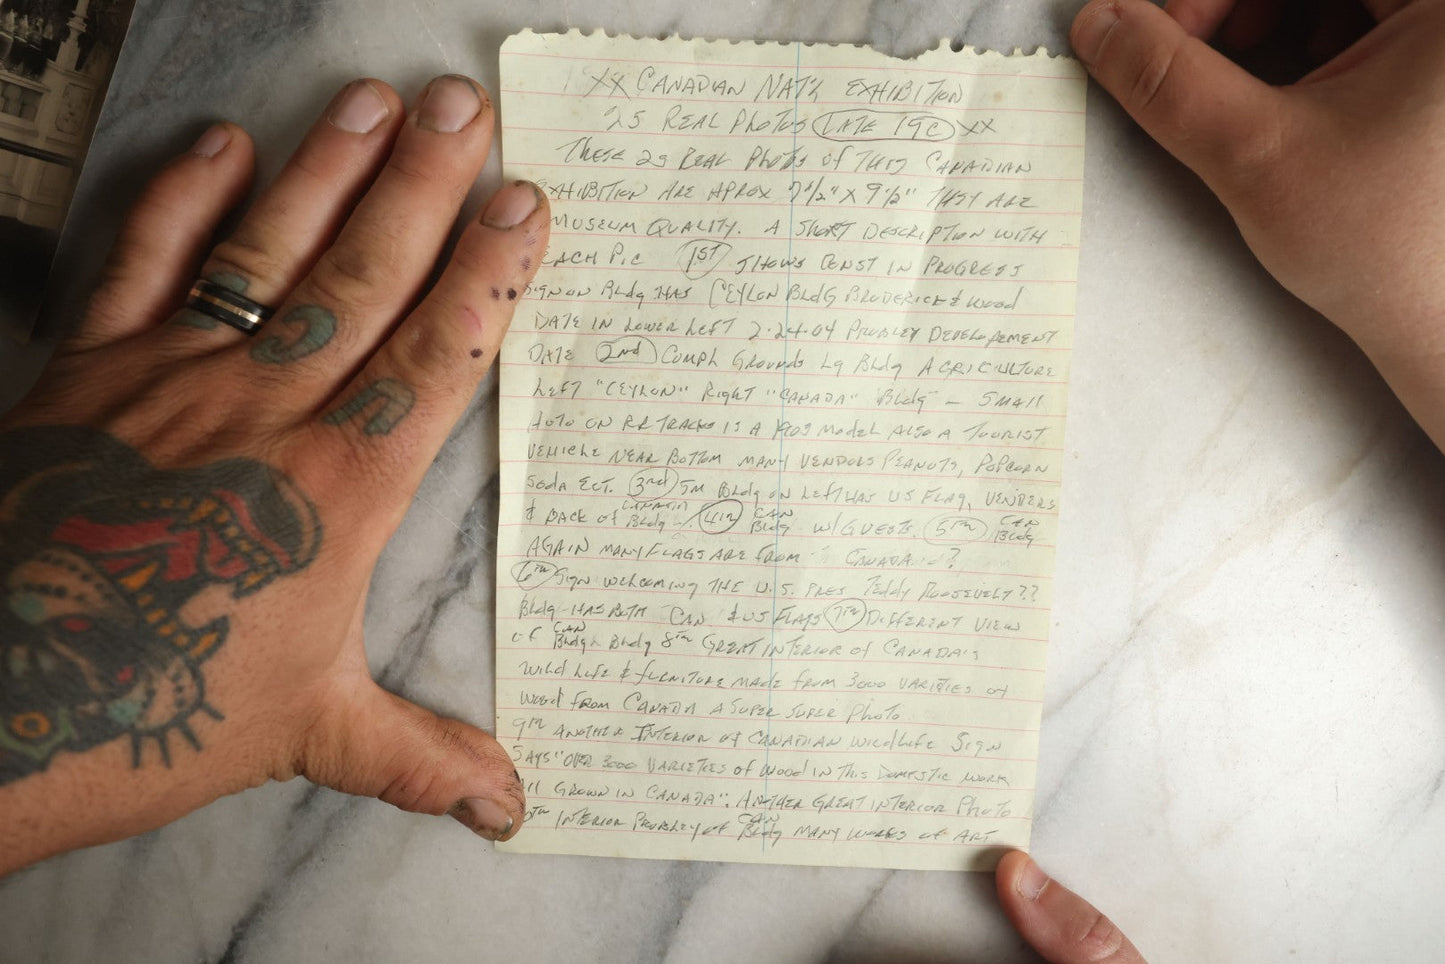 XX CANADIAN NAT'L EXHIBITION
25 REAL PHOTOS LATE 19C XX
THESE 25 REAL PHOTOS OF THIS CANADIAN
EXHIBITION ARE APROX 7 1/2" X 9 1/2" THEY ARE
MUSEUM QUALITY. A SHORT DESCRIPTION WITH
EACH PIC 1ST SHOWS CONST IN PROGRESS
SIGN ON BldG HAS CEYLON BLDG BRODERICK & WOOD
DATE IN LOWER LEFT 2-24-04 PROBLEY DEVELOPEMENT
DATE 2nd COMPL GROUNDS LG Bldg AGRICULTURE
LEFT "CEYLON" Right "CANADA" Bldg - SMAll
AUTO ON RR TRACKS IS A 1903 MODEL ALSO A TOURIST
VEHICLE NEAR BOTTOM MANY VENDORS PEANUTS, POPCORN
SODA ECT. 3rd SM Bldg ON LEFT HAS US FLAG, VENDERS
& BACK OF CANADIAN Bldg - 4TH CAN Bldg W/ GUESTS. 5TH CAN Bldg
AGAIN MANY FLAGS ARE FROM CANADA?
6TH SIGN WELCOMING THE U.S. PRES TEDDY ROOSEVELT??
Bldg HAS BOTH CAN & US FLAGS 7TH DIFFERENT VIEW
OF CAN Bldg Bldg 8TH GREAT INTERIOR OF CANADA'S
WILD LIFE & FURNITURE MADE FROM 3000 VARIETIES OF
WOOD FROM CANADA A SUPER SUPER PHOTO
9TH ANOTHER INTERIOR OF CANADIAN WILDLIFE SIGN
SAYS "OVER 3000 VARIETIES OF WOOD IN THIS DOMESTIC WORK
All GROWN IN CANADA". ANOTHER GREAT INTERIOR PHOTO
10TH INTERIOR PROBLEY OF CAN Bldg MANY WORKS OF ART